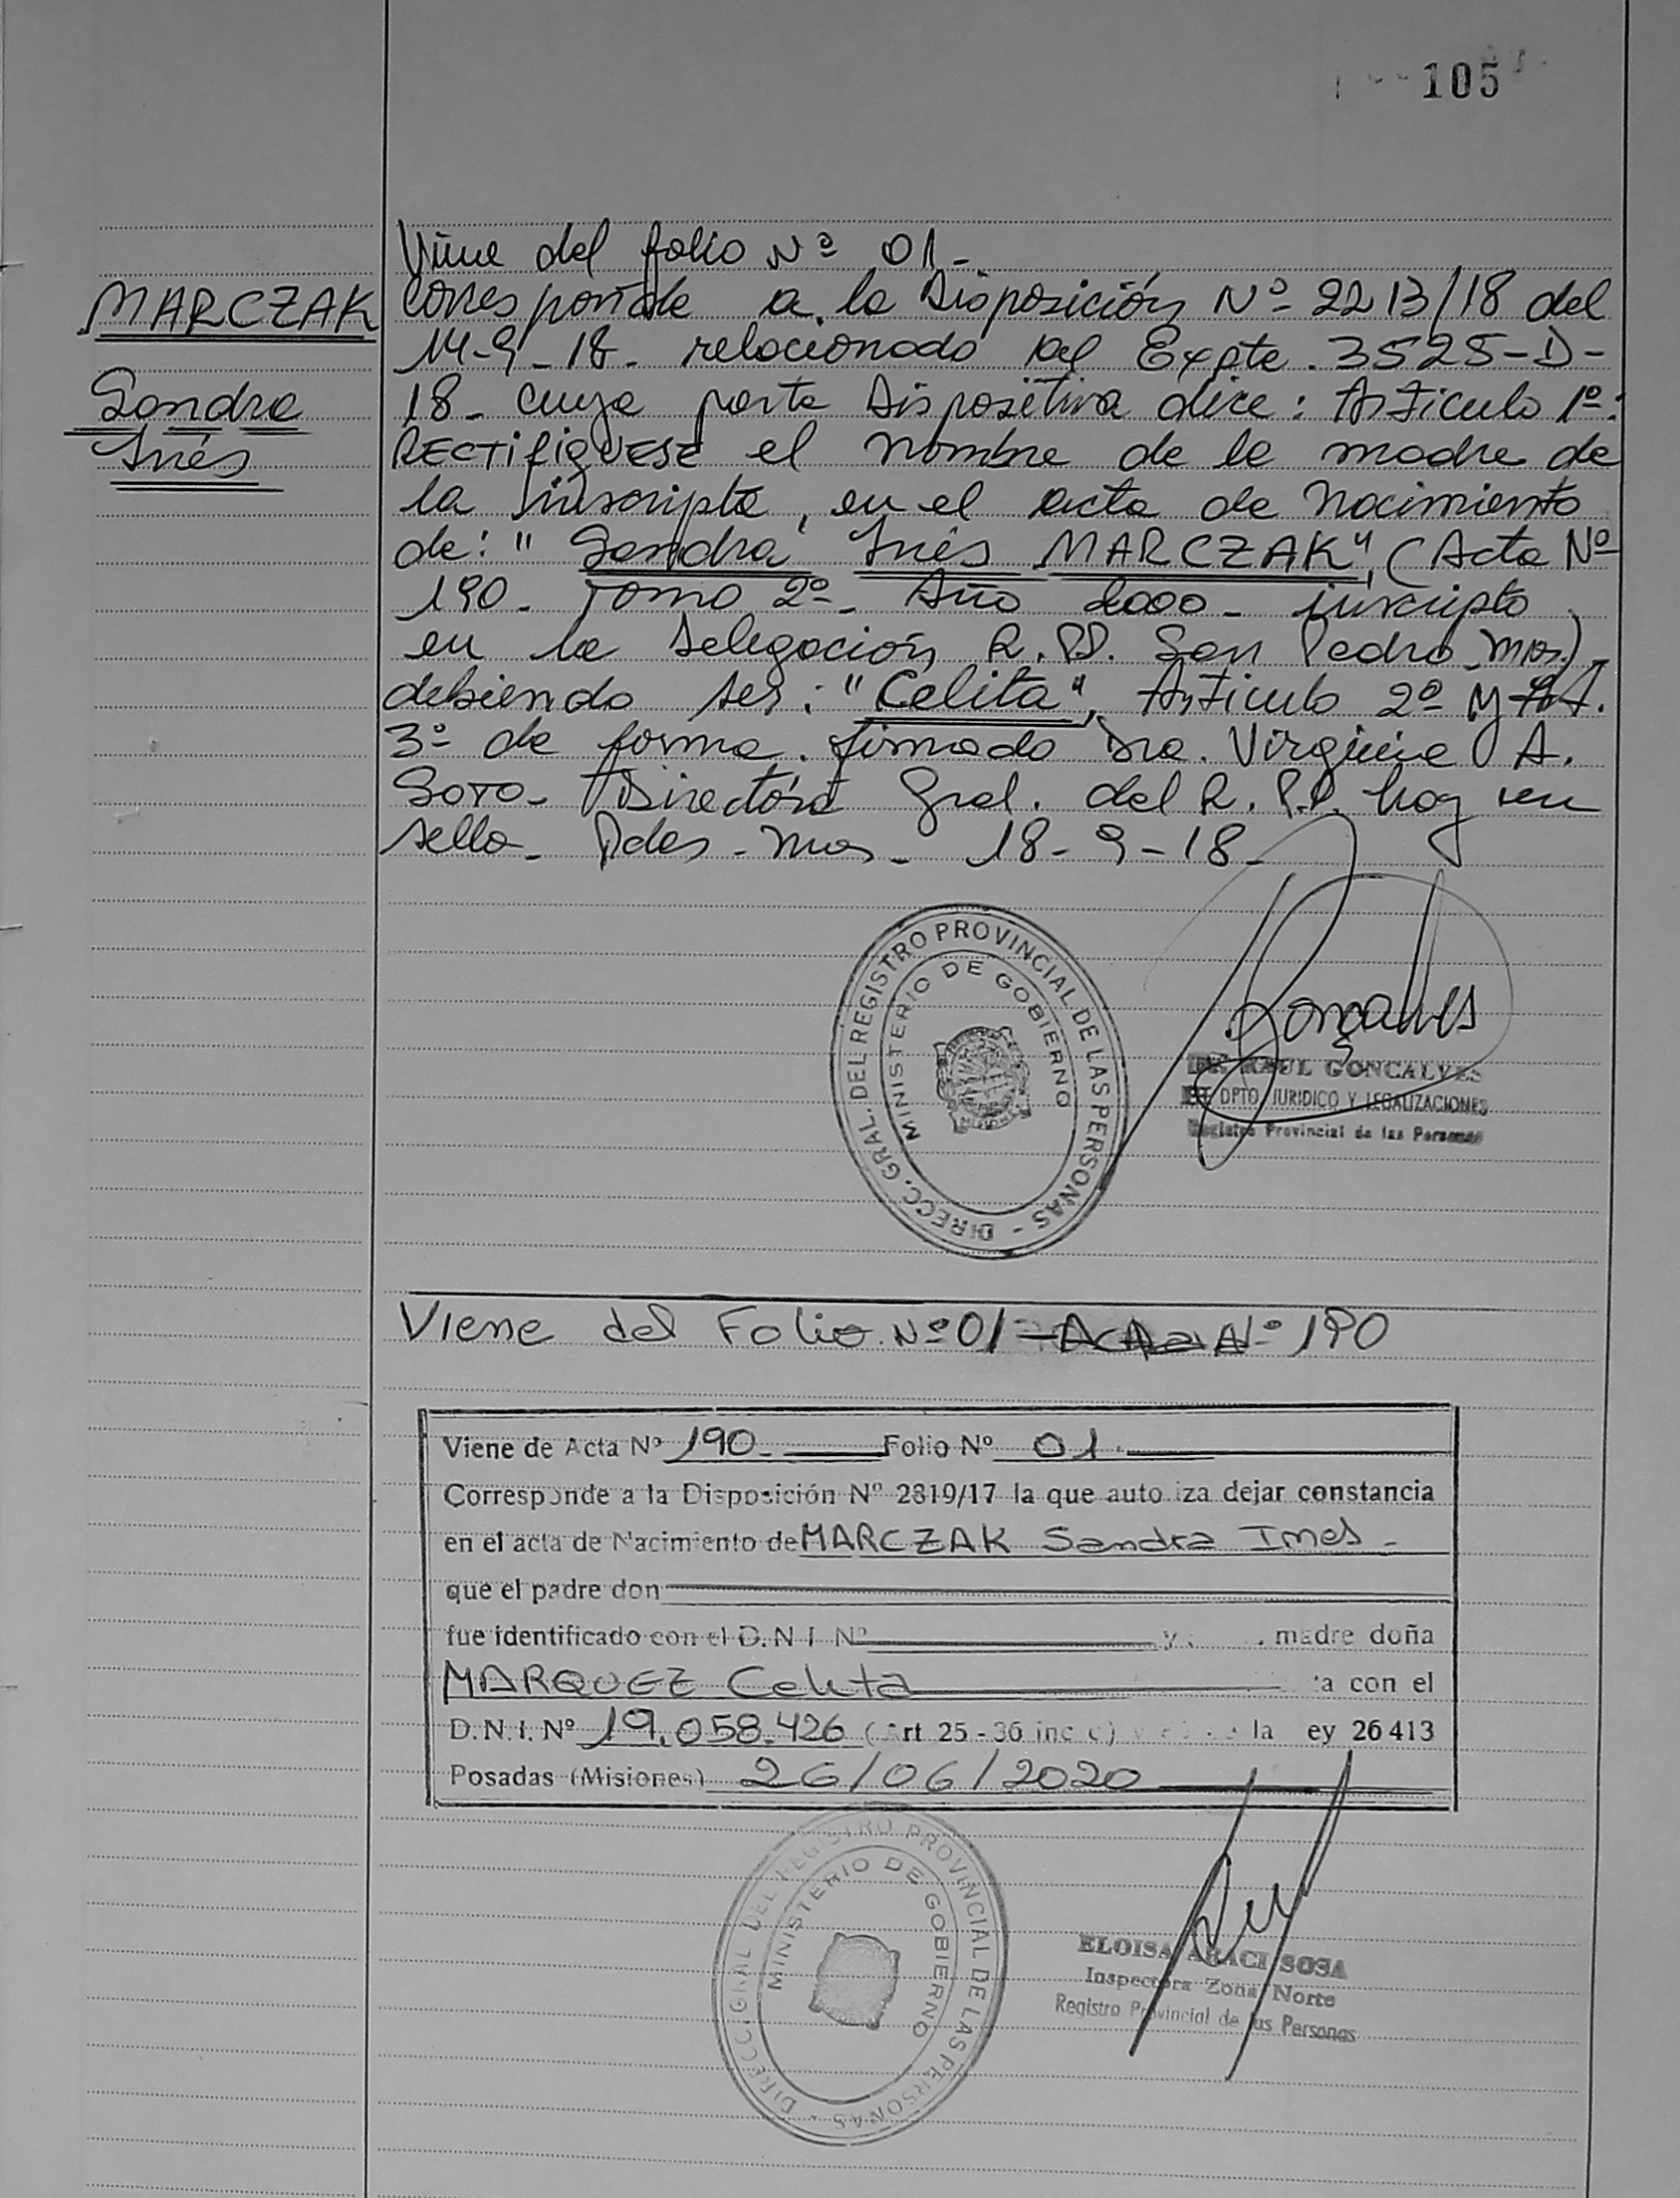 105
Viene del folio Nº 01-
MARCZAK
Sandra
Inés
Corresponde a la Disposición Nº 2213/18 del
14-9-18- relacionado al Expte. 3525-D-
18- cuya parte Dispositiva dice: Articulo 1º:
RECTIFIQUESE el nombre de la madre de
la inscripta, en el acta de Nacimiento
de: "Sandra Inés MARCZAK", (Acta Nº
190- Tomo 2º- Año 2000- inscripto
en la Delegación R.PP. San Pedro-Mnes.)
debiendo ser: "Celita", Articulo 2º y Art.
3º de forma. firmado Dra. Virginia A.
Soto- Directora Gral. del R.P.P. hay un
sello- Pdas-Mnes- 18-9-18-
DIRECC. GRAL. DEL REGISTRO PROVINCIAL DE LAS PERSONAS -
MINISTERIO DE GOBIERNO
Gonçalves
RAUL GONCALVES
DPTO JURIDICO Y LEGALIZACIONES
Registro Provincial de las Personas
Viene del Folio Nº 01 - Acta Nº 190
Viene de Acta Nº 190- Folio Nº 01-
Corresponde a la Disposición Nº 2819/17 la que auto iza dejar constancia
en el acta de Nacimiento de MARCZAK Sandra Ines-
que el padre don
fue identificado con el D.N.I. Nº y madre doña
MARQUEZ Celita a con el
D.N.I. Nº 19.058.426 (Art 25 - 36 inc c) la ey 26 413
Posadas (Misiones) 26/06/2020
DIRECC. GRAL DEL REGISTRO PROVINCIAL DE LAS PERSONAS -
MINISTERIO DE GOBIERNO
ELOISA ARACI SOSA
Inspectora Zona Norte
Registro Provincial de las Personas